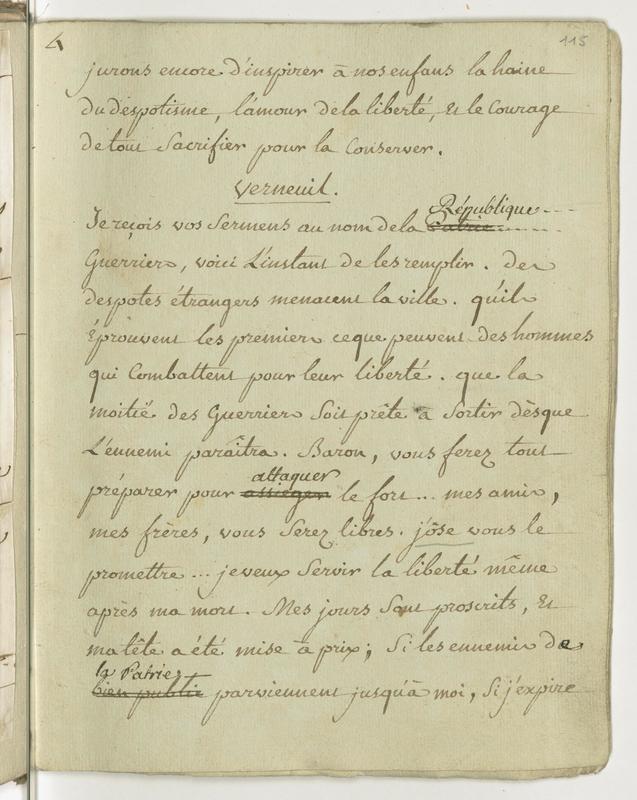 4
115
jurons encore d'inspirer à nos enfans la haine
du despotisme, l'amour de la liberté, et le Courage
de tout Sacrifier pour la Conserver.
Verneuil.
République
Je reçois vos Sermens au nom de la patrie
Guerriers, voici L'instant de les remplir. des
despotes étrangers menacent la ville. qu'ils
Éprouvent les premiers ce que peuvent des hommes
qui Combattent pour leur liberté. que la
moitié des Guerriers Soit prête à Sortir dèsque
L'ennemi paraîtra. Baron, vous ferez tout
attaquer
préparer pour assiéger le fort... mes amis,
mes frères, vous Serez libres. j'ôse vous le
promettre... je veux Servir la liberté même
après ma mort. Mes jours Sont proscrits, Et
ma tête a été mise à prix; Si les ennemis de
la Patrie
bien public parviennent jusqu'à moi, Si j'expire